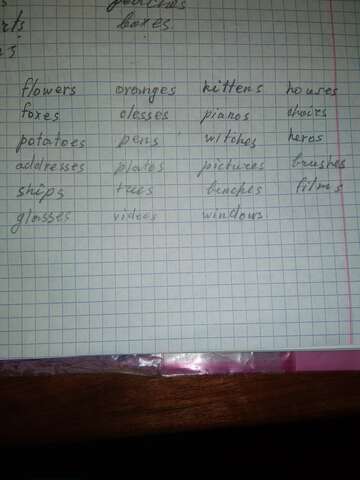 boxes.
flowers oranges kittens houses
foxes classes pianos chairs
potatoes pens witches heros
addresses plates pictures brushes
ships trees benches films
glasses videos windows